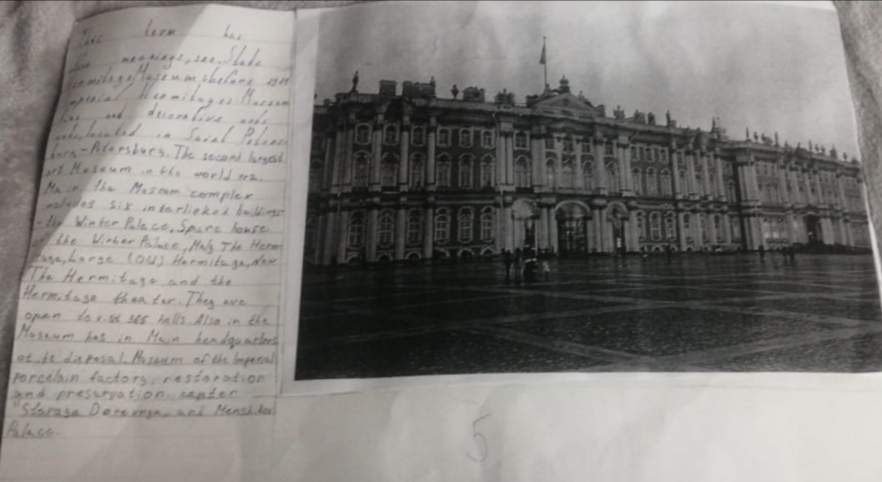 This term has
meanings, see. State
Hermitage Museum before 1917
Imperial Hermitages Museum
and decorative
located in Saint Peters
burg - Petersburg. The second largest
art Museum in the world
Main the Museum complex
includes six interlinked buildings
- the Winter Palace, Spare house
of the Winter Palace, Maly The Herm
tage, Large (Old) Hermitage, New
The Hermitage and the
Hermitage theater. They are
open to visit 365 halls. Also in the
Museum has in Main headquarters
at its disposal. Museum of the Imperial
porcelain factory, restoration
and preservation center
"Staraya Derevnya, and Menshikov
Palace.
5